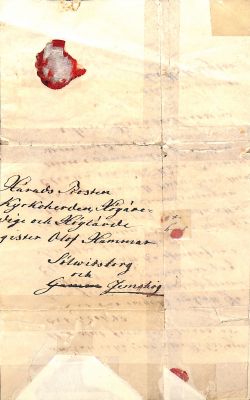 Härads Prosten
Kyrkoherden, Högäre-
dige och Höglärde
gister Olof Hammar
Sölwidsborg
och
Jemshög